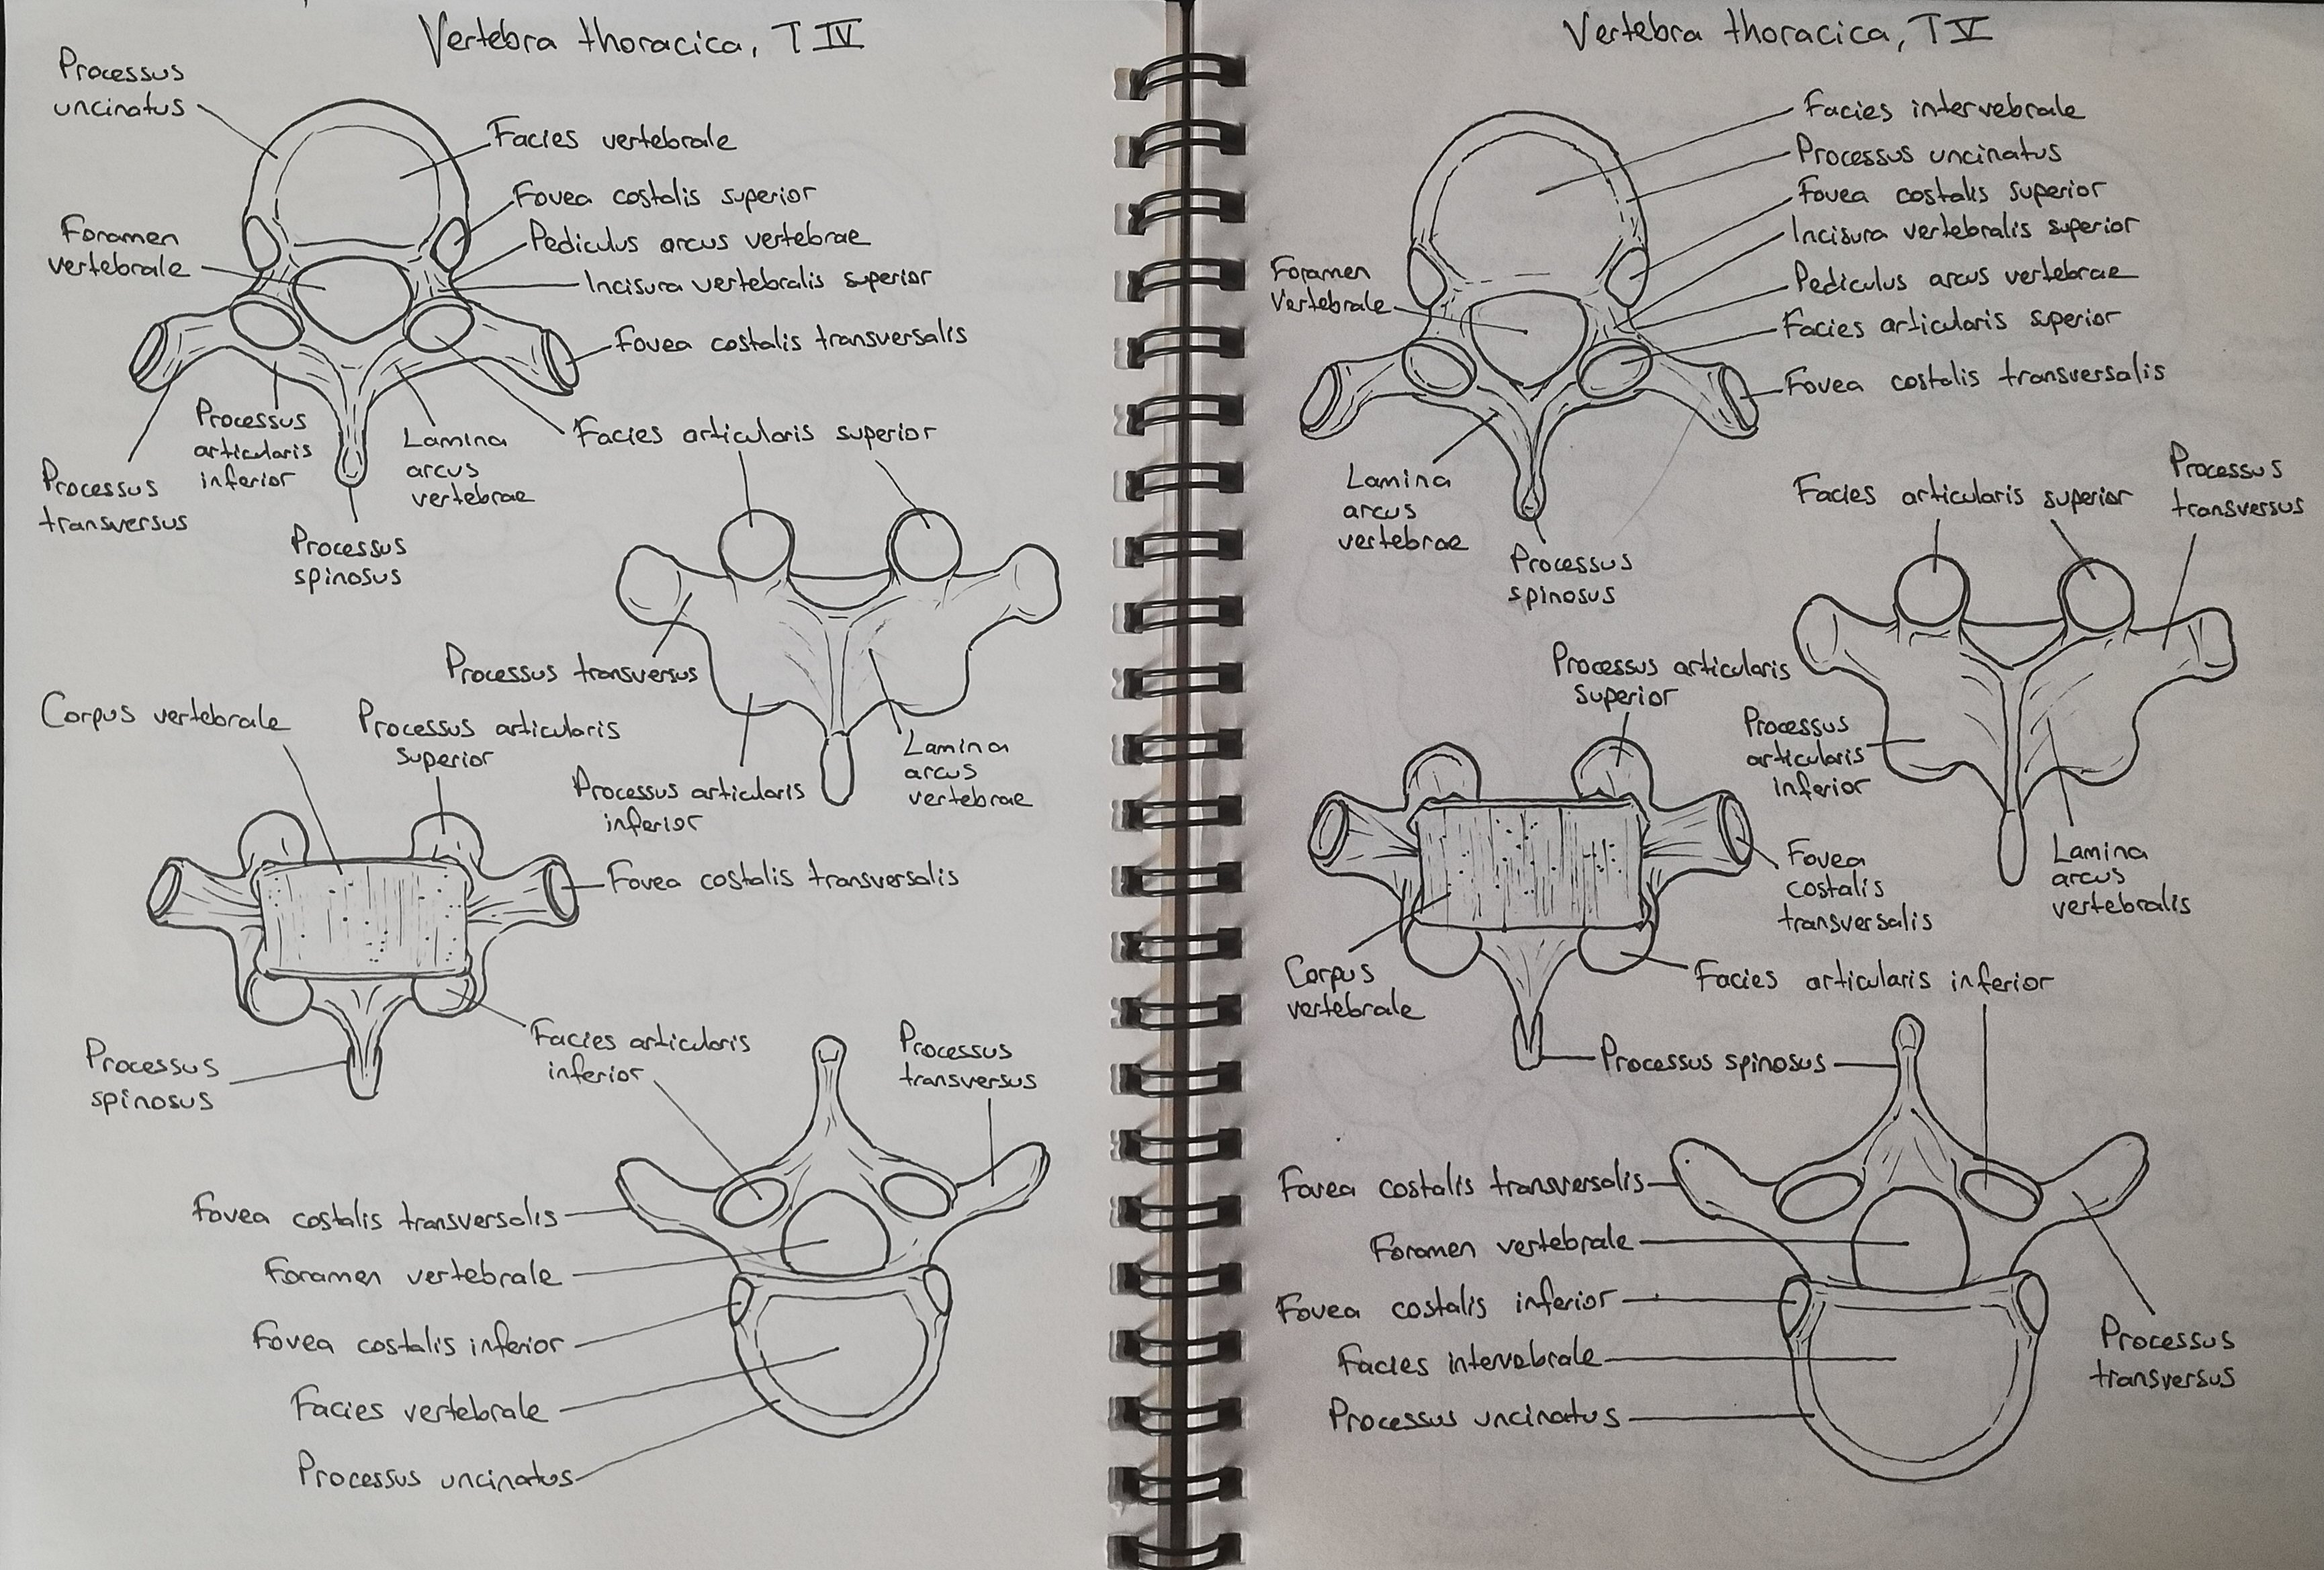 Vertebra thoracica, T IV
Processus
uncinatus
Facies vertebrale
Fovea costalis superior
Foramen
vertebrale
Pediculus arcus vertebrae
Incisura vertebralis superior
Fovea costalis transversalis
Processus
articularis
inferior
Lamina
arcus
vertebrae
Facies articularis superior
Processus
transversus
Processus
spinosus
Processus transversus
Corpus vertebrale
Processus articularis
superior
Processus articularis
inferior
Lamina
arcus
vertebrae
Fovea costalis transversalis
Processus
spinosus
Facies articularis
inferior
Processus
transversus
Fovea costalis transversalis
Foramen vertebrale
Fovea costalis inferior
Facies vertebrale
Processus uncinatus
Vertebra thoracica, T V
Facies intervebrale
Processus uncinatus
Fovea costalis superior
Incisura vertebralis superior
Foramen
Vertebrale
Pediculus arcus vertebrae
Facies articularis superior
Fovea costalis transversalis
Lamina
arcus
vertebrae
Processus
spinosus
Facies articularis superior
Processus
transversus
Processus articularis
superior
Processus
articularis
inferior
Fovea
costalis
transversalis
Lamina
arcus
vertebralis
Corpus
vertebrale
Facies articularis inferior
Processus spinosus
Fovea costalis transversalis
Foramen vertebrale
Fovea costalis inferior
Facies intervebrale
Processus uncinatus
Processus
transversus